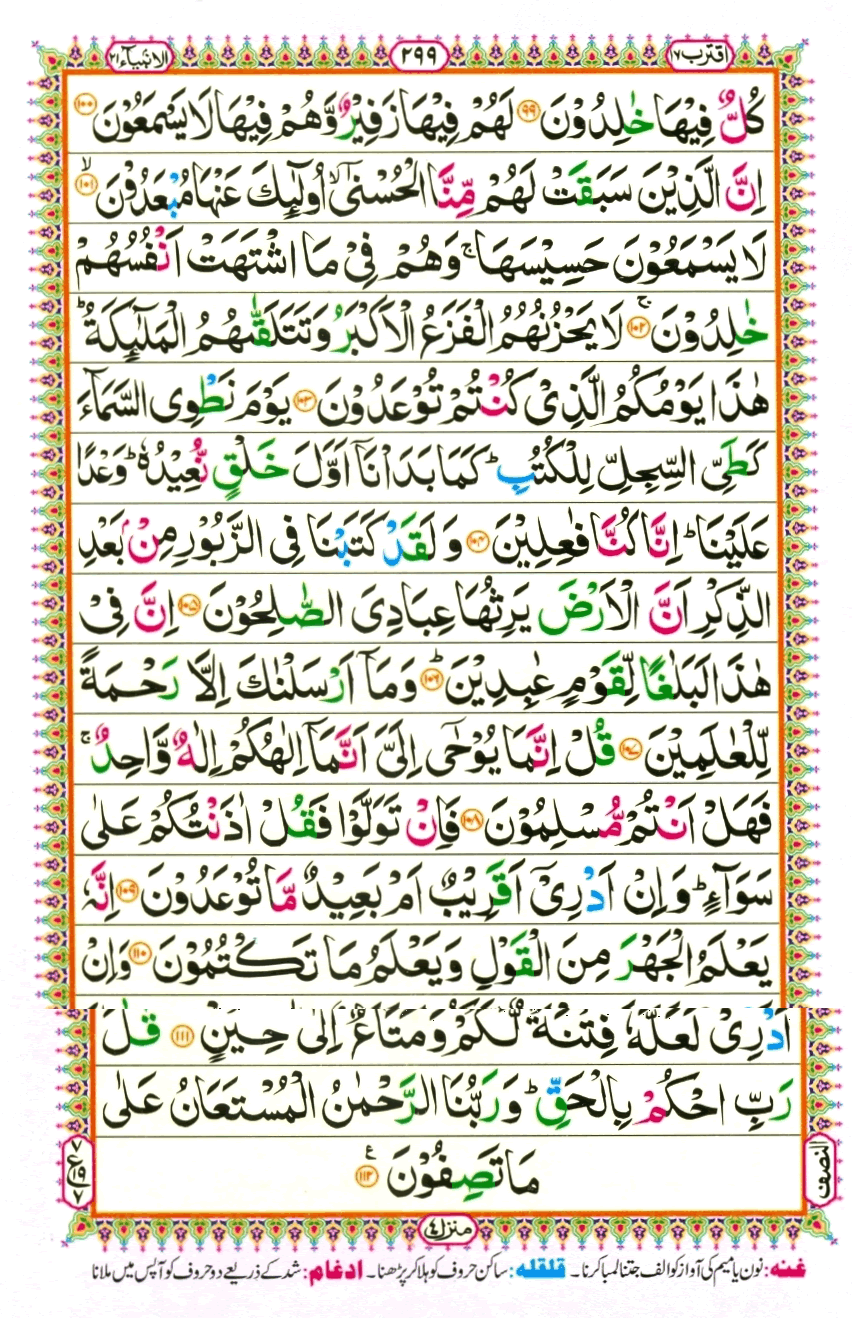 اقترب ١٧
٢٩٩
الانبیآء ٢١
كُلٌّ فِيْهَا خٰلِدُوْنَ ٩٩ لَهُمْ فِيْهَا زَفِيْرٌ وَّهُمْ فِيْهَا لَا يَسْمَعُوْنَ ١٠٠
اِنَّ الَّذِيْنَ سَبَقَتْ لَهُمْ مِّنَّا الْحُسْنٰۤى ۙ اُولٰٓئِكَ عَنْهَا مُبْعَدُوْنَ ۙ ١٠١
لَا يَسْمَعُوْنَ حَسِيْسَهَا ۚ وَهُمْ فِيْ مَا اشْتَهَتْ اَنْفُسُهُمْ
خٰلِدُوْنَ ۚ ١٠٢ لَا يَحْزُنُهُمُ الْفَزَعُ الْاَكْبَرُ وَتَتَلَقّٰىهُمُ الْمَلٰٓئِكَةُ ؕ
هٰذَا يَوْمُكُمُ الَّذِيْ كُنْتُمْ تُوْعَدُوْنَ ١٠٣ يَوْمَ نَطْوِى السَّمَآءَ
كَطَيِّ السِّجِلِّ لِلْكُتُبِ ؕ كَمَا بَدَاْنَاۤ اَوَّلَ خَلْقٍ نُّعِيْدُهٗ ؕ وَعْدًا
عَلَيْنَا ؕ اِنَّا كُنَّا فٰعِلِيْنَ ١٠٤ وَلَقَدْ كَتَبْنَا فِى الزَّبُوْرِ مِنْۢ بَعْدِ
الذِّكْرِ اَنَّ الْاَرْضَ يَرِثُهَا عِبَادِىَ الصّٰلِحُوْنَ ١٠٥ اِنَّ فِيْ
هٰذَا لَبَلٰغًا لِّقَوْمٍ عٰبِدِيْنَ ؕ ١٠٦ وَمَاۤ اَرْسَلْنٰكَ اِلَّا رَحْمَةً
لِّلْعٰلَمِيْنَ ١٠٧ قُلْ اِنَّمَا يُوْحٰۤى اِلَيَّ اَنَّمَاۤ اِلٰهُكُمْ اِلٰهٌ وَّاحِدٌ ۚ
فَهَلْ اَنْتُمْ مُّسْلِمُوْنَ ١٠٨ فَاِنْ تَوَلَّوْا فَقُلْ اٰذَنْتُكُمْ عَلٰى
سَوَآءٍ ؕ وَاِنْ اَدْرِيْۤ اَقَرِيْبٌ اَمْ بَعِيْدٌ مَّا تُوْعَدُوْنَ ١٠٩ اِنَّهٗ
يَعْلَمُ الْجَهْرَ مِنَ الْقَوْلِ وَيَعْلَمُ مَا تَكْتُمُوْنَ ١١٠ وَاِنْ
اَدْرِيْ لَعَلَّهٗ فِتْنَةٌ لَّكُمْ وَمَتَاعٌ اِلٰى حِيْنٍ ١١١ قٰلَ
رَبِّ احْكُمْ بِالْحَقِّ ؕ وَرَبُّنَا الرَّحْمٰنُ الْمُسْتَعَانُ عَلٰى
مَا تَصِفُوْنَ ١١٢ ع
النصف
٧ ع ١٩ ٧
منزل ٤
غنه: نون یا میم کی آواز کو الف جتنا لمبا کرنا۔ قلقله: ساکن حروف کو ہلا کر پڑھنا۔ ادغام: شد کے ذریعے دو حروف کو آپس میں ملانا